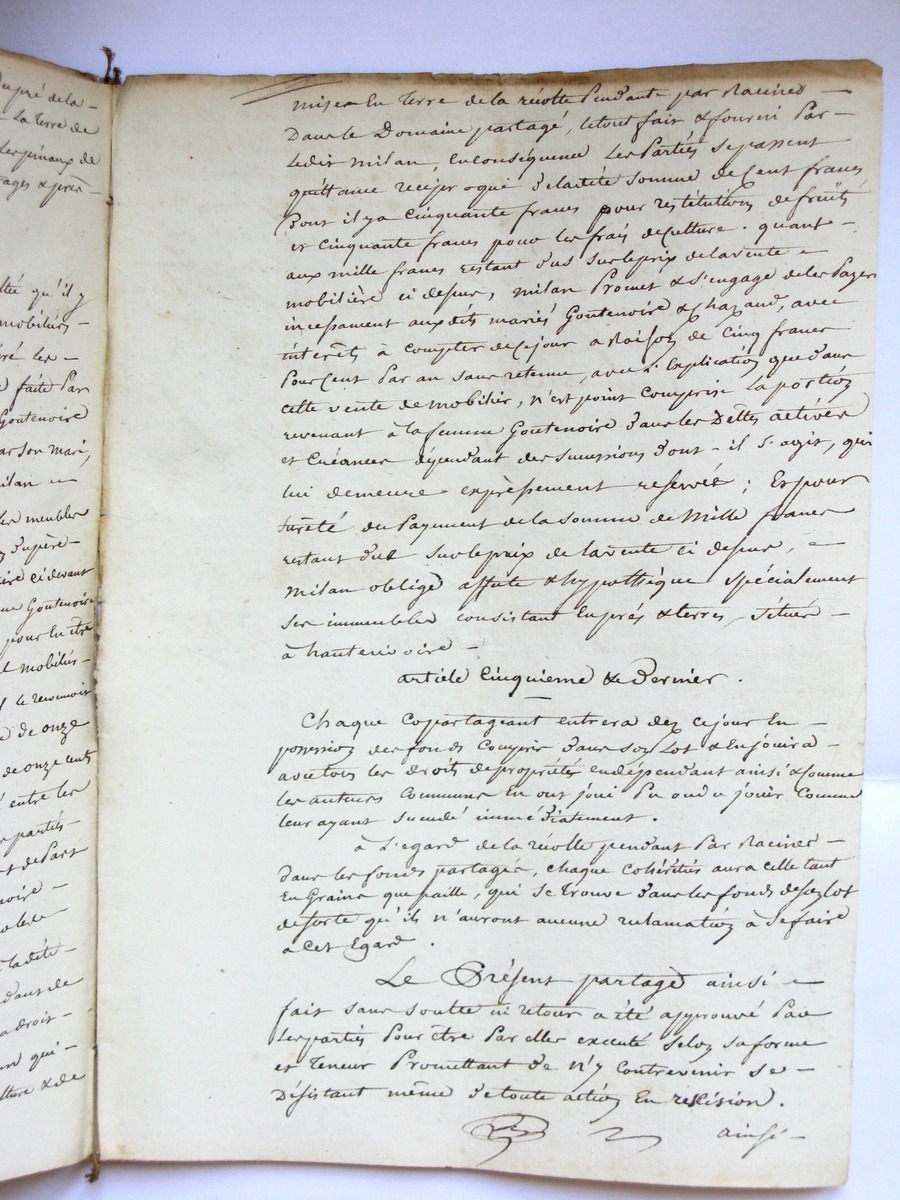 du pré de la —
— La Terre de
mobiliers —
faite Par
Goutenoire
par Son mari,
milan —
meubles
ci devant
Goutenoire
pour En être
mobiliers —
le reconnoit
de onze
de onze cents
entre les
parties
de Part
droit —
mise En Terre de la récolte Pendante par Racines —
Dans le Domaine partagé, le tout fait & fourni Par —
Ledit Milan, En conséquence Les Parties se passent
quittance réciproque de ladite Somme de Cent francs
Dont il y a Cinquante francs pour restitution de fruits
et Cinquante francs pour les frais de Culture. quant —
aux mille francs restant dus sur le prix de la vente —
mobilière ci dessus, milan Promet & s'engage de les Payer
incessament aux dits mariés Goutenoire & Chazaud, avec
intérêts à compter de ce jour a Raison de Cinq francs
Pour Cent Par an sans retenue, avec l'Explication que dans
cette vente de mobilier, n'est point comprise La portion
revenant à la femme Goutenoire dans les Dettes actives
et Créances dépendant des successions dont — il s'agit, qui
lui demeure expressement reservée ; Et pour
Sureté du Payement de la Somme de Mille francs
restant due sur le prix de la vente ci dessus, —
Milan oblige affecte & hypothèque spécialement
ses immeubles consistant En prés & terres, Situés —
à hauterivoire —
article Cinquieme & Dernier .
Chaque Copartageant entrera des ce jour En —
possession des fonds Compris dans son Lot & En jouira —
avec tous les droits de propriétés en dépendant ainsi & comme
les auteurs communs En ont joui Pu ou du jouir Comme
leur ayant succedé immédiatement .
à L'egard de la récolte pendant Par Racines —
dans les fonds partagés, chaque Cohéritier aura celle tant
En Grains que paille, qui se trouve dans les fonds de son lot
de sorte qu'ils n'auront aucune réclamation à se faire
à Cet Egard .
Le Présent partage ainsi —
fait sans soulte ni retour a été approuvé Par
Les parties Pour être Par elles executé selon sa forme
et Teneur Promettant de n'y contrevenir se —
Désistant même de toute action En rescision .
ainsi —